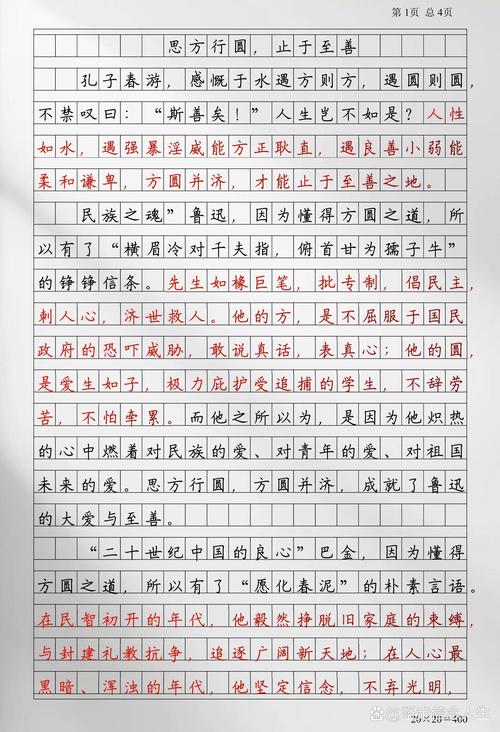 第1页 总4页
思方行圆，止于至善
孔子春游，感慨于水遇方则方，遇圆则圆，
不禁叹曰：“斯善矣！”人生岂不如是？人性
如水，遇强暴淫威能方正耿直，遇良善小弱能
柔和谦卑，方圆并济，才能止于至善之地。
民族之魂”鲁迅，因为懂得方圆之道，所
以有了“横眉冷对千夫指，俯首甘为孺子牛”
的铮铮信条。先生如椽巨笔，批专制，倡民主，
刺人心，济世救人。他的方，是不屈服于国民
政府的恐吓威胁，敢说真话，表真心；他的圆，
是爱生如子，极力庇护受追捕的学生，不辞劳
苦，不怕牵累。而他之所以为，是因为他炽热
的心中燃着对民族的爱、对青年的爱、对祖国
未来的爱。思方行圆，方圆并济，成就了鲁迅
的大爱与至善。
“二十世纪中国的良心”巴金，因为懂得
方圆之道，所以有了“愿化春泥”的朴素言语。
在民智初开的年代，他毅然挣脱旧家庭的束缚，
与封建礼教抗争，追逐广阔新天地；在人心最
黑暗、浑浊的年代，他坚定信念，不弃光明，
20×20=400